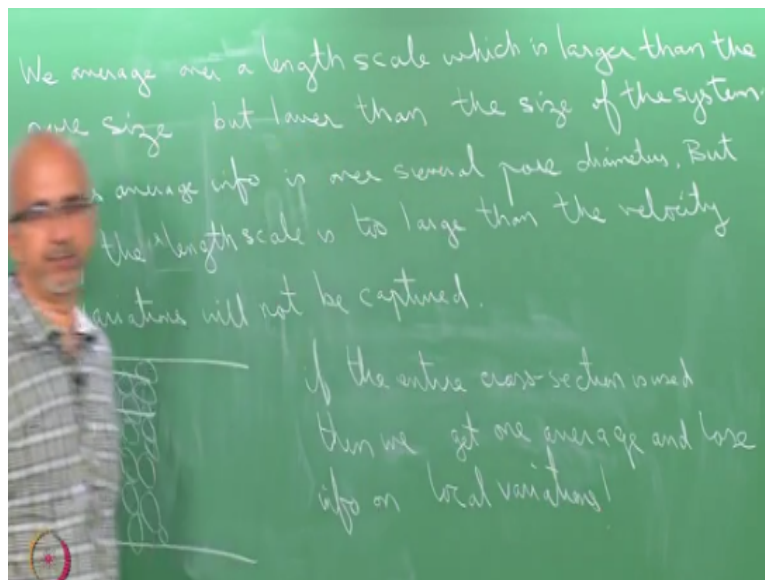 We average over a length scale which is larger than the
pore size but lower than the size of the system.
average info is over several pore diameters. But
the length scale is too large than the velocity
variations will not be captured.
if the entire cross-section is used
then we get one average and lose
info on local variations!